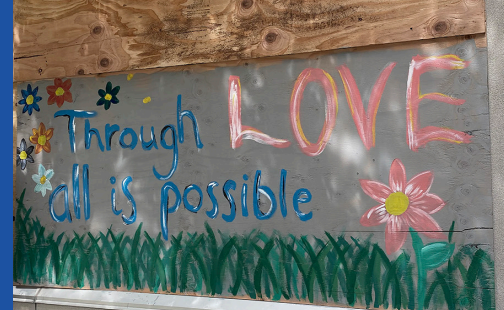 Through LOVE
all is possible